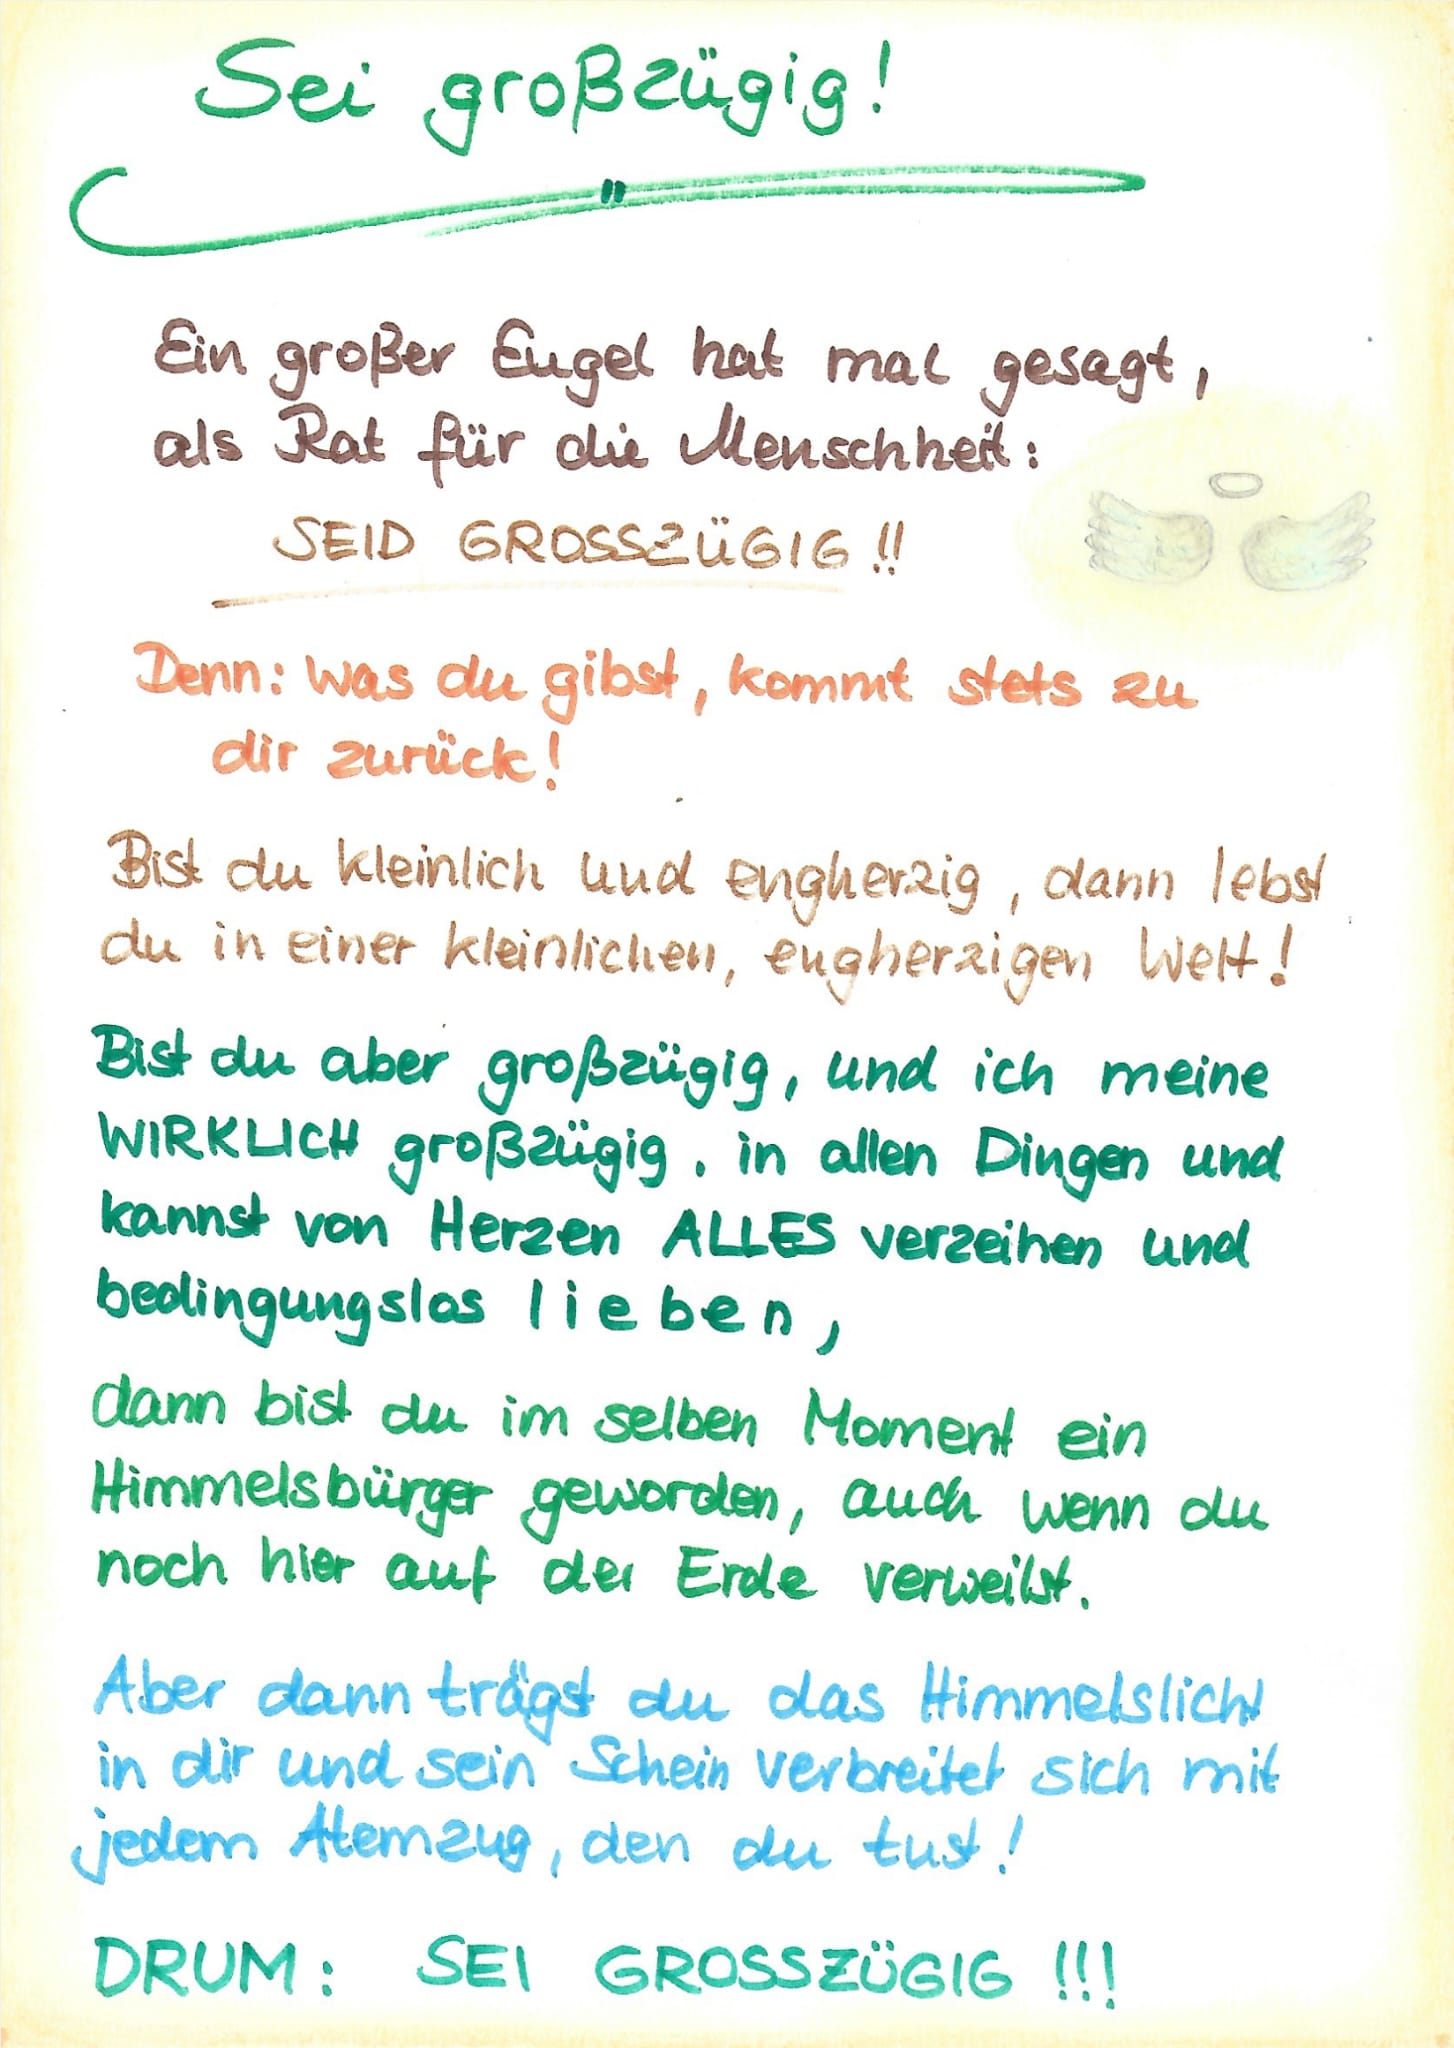 Sei großzügig!
Ein großer Engel hat mal gesagt,
als Rat für die Menschheit:
SEID GROSSZÜGIG!!
Denn: Was du gibst, kommt stets zu
dir zurück!
Bist du kleinlich und engherzig, dann lebst
du in einer kleinlichen, engherzigen Welt!
Bist du aber großzügig, und ich meine
WIRKLICH großzügig, in allen Dingen und
kannst von Herzen ALLES verzeihen und
bedingungslos lieben,
dann bist du im selben Moment ein
Himmelsbürger geworden, auch wenn du
noch hier auf der Erde verweilst.
Aber dann trägst du das Himmelslicht
in dir und sein Schein verbreitet sich mit
jedem Atemzug, den du tust!
DRUM: SEI GROSSZÜGIG!!!